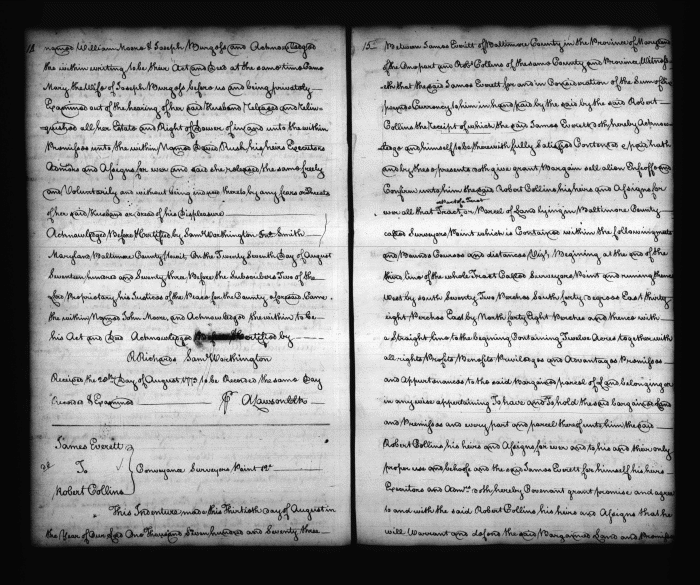 named William Moore & Joseph Burgess and Acknowledged
the within writing to be their Act and Deed at the same time Came
Mary the Wife of Joseph Burgess before us and being privately
Examined out of the hearing of her said Husband Released and Relin-
quished all her Estate and Right of Dower of in and unto the within
Premises unto the within Named David Rusk, his heirs Executors
Admors and Assigns for ever and said she released the same freely
and Voluntarily and without being induced thereto by any fears or threats
of her said Husband or dread of his Displeasure
Acknowledged Before & Certified by Saml Worthington Smith
Maryland Baltimore County to wit. On the Twenty Seventh Day of August
Seventeen hundred and Seventy three Before the Subscribers Two of the
Lord Proprietary his Justices of the Peace for the County aforesaid Came
the within Named John Moore, and Acknowledged the within to be
his Act and Deed Acknowledged Certified by
R Richards Saml Worthington
Received the 28th Day of August 1773 to be Recorded the same Day
Recorded & Examined P A Lawson Clk
James Everett
To
Robert Collins
Conveyance Surveyors Point
This Indenture made this Thirtieth day of August in
the Year of Our Lord One Thousand Seven hundred and Seventy three
15
Between James Everitt of Baltimore County in the Province of Maryland
of the One part and Robt Collins of the same County and Province, Witnesse-
eth that the said James Everett for and in Consideration of the Sum of five
pounds Currency to him in hand paid by the said by the said Robert
Collins the receipt of which the said James Everett doth hereby Acknow-
ledge and himself to be therewith fully Satisfied Contented & paid hath
and by these presents doth give grant Bargain sell alien Enfeoff and
Confirm unto him the said Robert Collins his heirs and Assigns for
part of a Tract
ever all that Tract or Parcel of Land lying in Baltimore County
called Surveyors Point which is Contained within the following metes
and Bounds Courses and distances Vizt Begining at the end of the
third line of the whole Tract Called Surveyors Point and runing thence
West by south Seventy Two Perches South forty degrees East thirty
eight Perches East by North forty Eight Perches and thence with
a straight line to the begining Containing Twelve Acres together with
all rights Profits Benefits Priviledges and Advantages Premisses
and Appurtenances to the said Bargained parcel of Land belonging or
in any wise appertaining To have and To hold the said bargained Land
and Premisses and every part and parcel thereof unto him the said
Robert Collins, his heirs and Assigns, for ever and to his and their only
proper use and behoof and the said James Everett for himself his heirs
Executors and Admrs doth hereby Covenant grant promise and agree
to and with the said Robert Collins his heirs and Assigns that he
will Warrant and defend the said Bargained Land and Premisses